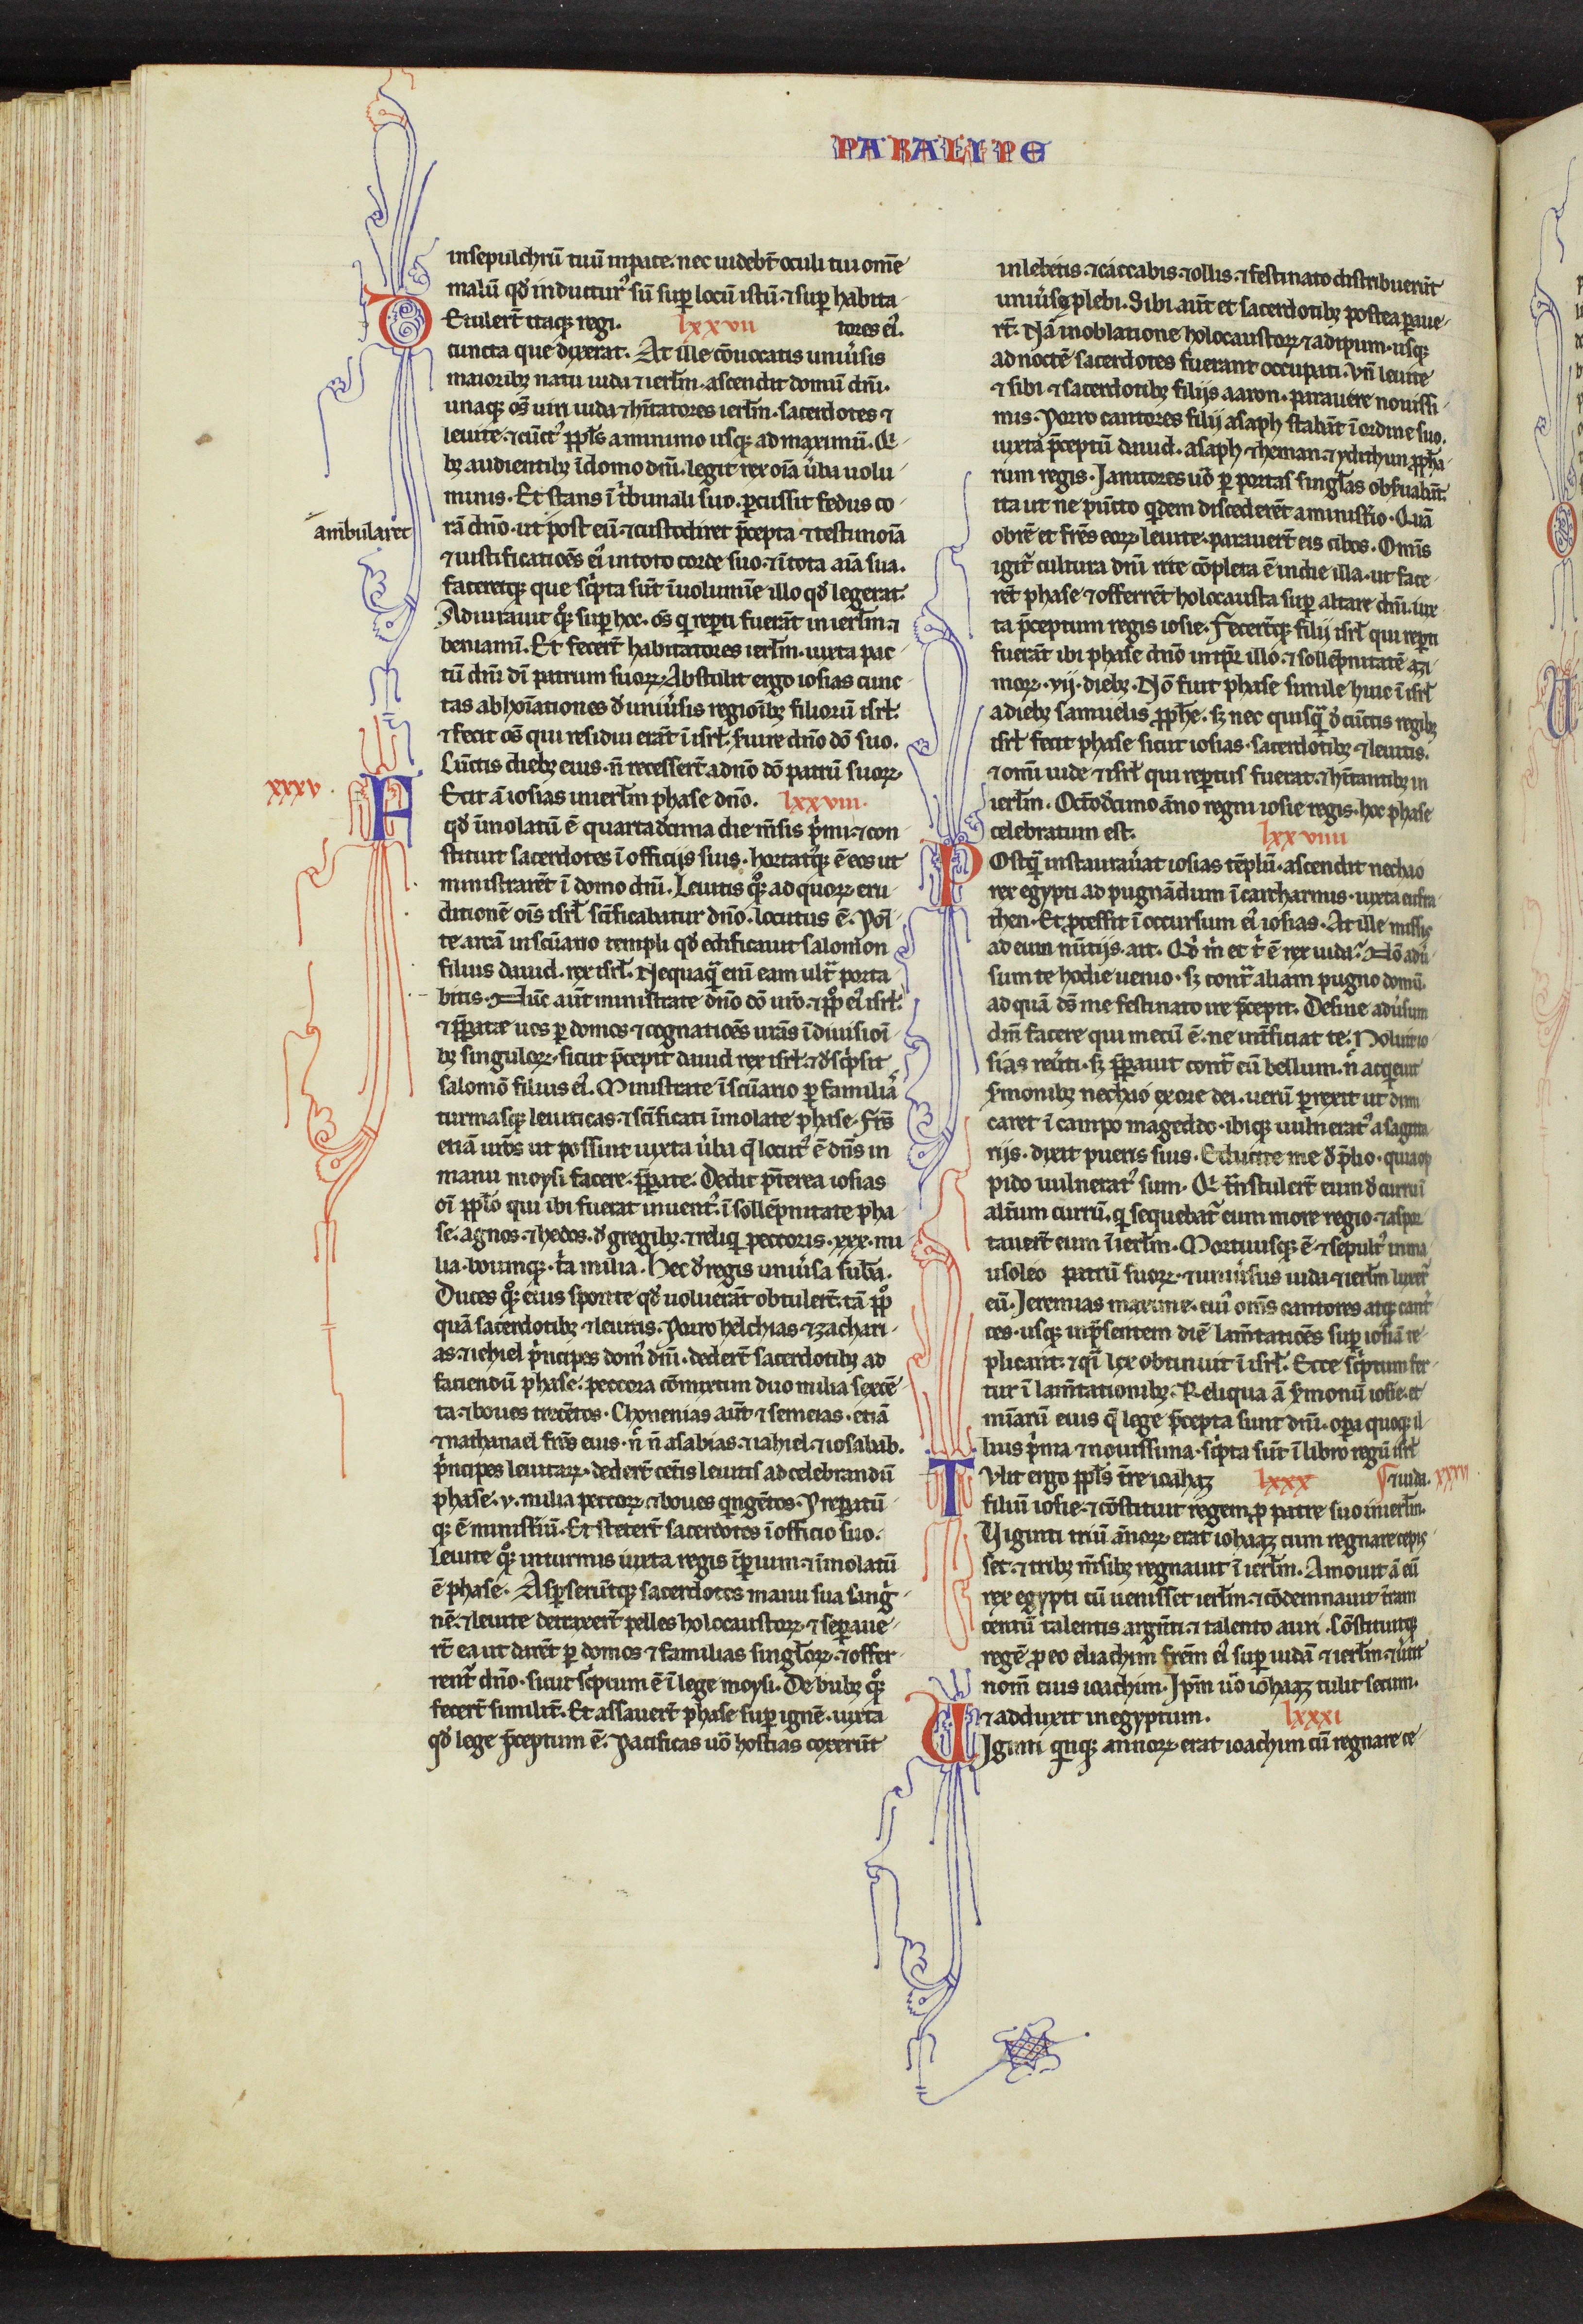 PARALIPO
insepulchrū tuū inpace. nec uidebt̄ oculi tui om̄e
malū qd̓ inducturꝰ sū suꝑ locū istū. ⁊ suꝑ habita-
Etulert̄ itaqꝫ regi. lxxvii tores eiꝰ.
cuncta que dixerat. At ille cōuocatis uniu̓sis
maioribꝫ natu iuda ⁊ ierl̄m. ascendit domū dn̄i.
unaqꝫ om̄s uiri iuda ⁊ hītatores ierl̄m. sacerdotes ⁊
leuite. ⁊ cūctꝰ ppl̄s a minimo usqꝫ ad maximū. Qͥ-
bꝫ audientibꝫ ī domo dn̄i. legit rex oīa u̓ba uolu-
minis. Et stans ī tͥbunali suo. ꝑcussit fedus co-
ambularet
rā dn̄o. ut post eū. ⁊ custodiret p̄cepta ⁊ testimoīa
⁊ iustificatiōes eiꝰ in toto corde suo. ⁊ ī tota aīa sua.
faceretqꝫ que scͥpta sūt ī uolumīe illo qd̓ legerat.
Adiurauit qͦꝫ suꝑ hoc. om̄s qͥ reꝑti fuerāt in ierl̄m. ⁊
beniamī. Et fecert̄ habitatores ierl̄m. iuxta pac-
tū dn̄i dī patrum suoꝝ. Abstulit ergo iosias cunc-
tas abhoīationes d̓ uniu̓sis regioībꝫ filiorū isrl̄.
⁊ fecit om̄s qui residui erāt ī isrl̄. suire dn̄o dō suo.
Cūctis diebꝫ eius. n̄ recessert̄ a dn̄o dō patrū suoꝝ.
xxxv.
Fecit ā iosias in ierl̄m phase dn̄o. lxxviii.
qd̓ īmolatū ē quartadecima die m̄sis pͥmi. ⁊ con-
stituit sacerdotes ī officijs suis. hortatꝰqꝫ ē eos ut
ministrarēt ī domo dn̄i. Leuitis qͦꝫ ad quoꝝ eru-
ditionē oīs isrl̄ sc̄ificabatur dn̄o. locutus ē. Poī-
te arcā in sc̄uario templi qd̓ edificauit salomon
filius dauid. rex isrl̄. Nequaqͣ enī eam ultͣ porta
bitis. Nūc aūt ministrate dn̄o dō ur̄o. ⁊ pplͦ eiꝰ isrl̄.
⁊ p̄ꝑate uos ꝑ domos ⁊ cognatiōes ur̄as ī diuisioī-
bꝫ singuloꝝ. sicut p̄cepit dauid rex isrl̄. ⁊ d̓scͥpsit
salomō filius eiꝰ. Ministrate ī sc̄uario ꝑ familias
turmasqꝫ leuiticas. ⁊ sc̄ificati īmolate phase. Fr̄s
etiā ur̄os ut possint iuxta u̓ba q̄ locutꝰ ē dn̄s in
manu moysi facere. p̄ꝑate. Dedit p̄terea iosias
oī ppl̄o qui ibi fuerat inuentꝰ. ī sollēpnitate pha-
se. agnos. ⁊ hedos. d̓ gregibꝫ. ⁊ reliqͥ peccoris. xxx. mi
lia. boumqꝫ. tͥa milia. Hec d̓ regis uniu̓sa sub̄a.
Duces qͦꝫ eius sponte qd̓ uoluerāt obtulert̄. tā pplͦ
quā sacerdotibꝫ ⁊ leuitis. Porro helchias ⁊ zachari-
as. ⁊ iehiel pͥncipes domꝰ dn̄i. dedert̄ sacerdotibꝫ ad
faciendū phase. peccora cōmixtim duo milia sexcē-
ta. ⁊ boues trecētos. Chonenias aūt ⁊ semeias. etiā
⁊ nathanael fr̄es eius. n̄ n̄ asabias. ⁊ iahiel. ⁊ iosabab.
pͥncipes leuitaꝝ. dedert̄ cet̄is leuitis ad celebrandū
phase. v. milia peccoꝝ. ⁊ boues qͥngētos. Preꝑatū
qꝫ ē ministiū. Et stetert̄ sacerdotes ī officio suo.
Leuite qͦꝫ in turmis iuxta regis īꝑium. ⁊ īmolatū
ē phase. Asꝑseruntqꝫ sacerdotes manu sua sangͥ-
nē. ⁊ leuite detraxert̄ pelles holocaustoꝝ. ⁊ seꝑaue-
rt̄ ea ut darēt ꝑ domos ⁊ familias singl̄oꝝ. ⁊ offer-
rent̄ dn̄o. sicut scͥptum ē ī lege moysi. De bubꝫ qͦꝫ
fecert̄ similit̄. Et assauert̄ phase suꝑ ignē. iuxta
qd̓ lege p̄ceptum ē. Pacificas uō hostias coxerūt
in lebetis. ⁊ caccabis. ⁊ ollis. ⁊ festinato distribuerūt
uniu̓se plebi. Sibi aūt et sacerdotibꝫ postea ꝑaue-
rt̄. Nā in oblatione holocaustoꝝ ⁊ adipum. usqꝫ
ad noctē sacerdotes fuerant occupati. Vn̄ leuite
⁊ sibi ⁊ sacerdotibꝫ filijs aaron. parauere nouissi-
mis. Porro cantores filij asaph stabāt ī ordine suo.
iuxta p̄ceptū dauid. asaph ⁊ heman. ⁊ ydithun ꝓph̄a-
rum regis. Janitores uō ꝑ portas singl̄as obsuabāt.
ita ut ne pūcto qͥdem discederēt a ministio. Quā
obrē et fr̄es eoꝝ leuite. parauert̄ eis cibos. Om̄is
igit̄ cultura dn̄i rite cōpleta ē in die illa. ut face-
rēt phase ⁊ offerrēt holocausta suꝑ altare dn̄i. iux
ta p̄ceptum regis iosie. Fecert̄qꝫ filij isrl̄ qui reꝑti
fuerāt ibi phase dn̄o in tp̄r illo. ⁊ sollēpnitatē azi-
moꝝ. vij. diebꝫ. Nō fuit phase simile huic ī isrl̄
a diebꝫ samuelis ꝓph̄e. sꝫ nec quisqͣ d̓ cūctis regibꝫ
isrl̄ fecit phase sicut iosias. sacerdotibꝫ ⁊ leuitis.
⁊ omī iude ⁊ isrl̄ qui reꝑtus fuerat. ⁊ hītantibꝫ in
ierl̄m. Octōd̓cimo āno regni iosie regis. hoc phase
celebratum est. lxxviiii
Postqͣ instauraūat iosias tēplū. ascendit nechao
rex egypti ad pugnādum ī carcharmis. iuxta eufra
then. Et ꝓcessit ī occursum eiꝰ iosias. At ille missis
ad eum nūtijs. ait. Qͥd mͥ et tͥ ē rex iuda. Nō adu̓
sum te hodie uenio. sꝫ contͣ aliam pugno domū.
ad quā ds̄ me festinato ire p̄cepit. Desine adu̓sum
dm̄ facere qui mecū ē. ne int̄ficiat te. Noluit io-
sias reu̓ti. sꝫ p̄ꝑauit contͣ eū bellum. n̄ acqͥeuit
s̓monibꝫ nechao ex ore dei. uerū ꝑrexit ut dimi
caret ī campo mageddo. ibiqꝫ uulneratꝰ a sagitta
rijs. dixit pueris suis. Educite me d̓ p̄lio. quia op
pido uulneratꝰ sum. Qͥ tͣnstulert̄ eum d̓ curru ī
alt̄um currū. qͥ sequebat̄ eum more regio. ⁊ aspor
tauert̄ eum ī ierl̄m. Mortuusqꝫ ē. ⁊ sepultꝰ in ma
usoleo patrū suoꝝ. ⁊ uniu̓sus iuda ⁊ ierl̄m luxert̄
eū. Jeremias maxime. cuiꝰ om̄s cantores atqꝫ cantͥ
ces. usqꝫ in p̄sentem diē lam̄tatiōes suꝑ iosiā re-
plicant. ⁊ qͣi lex obtinuit ī isrl̄. Ecce scͥptum fer-
tur ī lam̄tationibꝫ. Reliqua ā s̓monū iosie. et
mīarū eius q̄ lege p̄cepta sunt dn̄i. oꝑa quoqꝫ il-
lius pͥma ⁊ nouissima. scͥpta sūt ī libro regū isrl̄
Tulit ergo ppl̄s tr̄e ioahaz lxxx ⁊ iuda. xxxvi
filiū iosie. ⁊ cōstituit regem ꝓ patre suo in ierl̄m.
Viginti triū ānoꝝ. erat iohaaz cum regnare cepis-
set. ⁊ tribꝫ m̄sibꝫ regnauit ī ierl̄m. Amouit ā eū
rex egypti cū uenisset ierl̄m. ⁊ cōdemnauit tr̄am
centū talentis argn̄ti. ⁊ talento auri. Cōstituitqꝫ
regē ꝓ eo eliachim frēm eiꝰ suꝑ iudā ⁊ ierl̄m. ⁊ u̓tit
nom̄ eius ioachim. Ipm̄ uō iohaaz tulit secum.
⁊ adduxit in egyptum. lxxxi
Viginti qͥnqꝫ annoꝝ erat ioachim cū regnare ce-